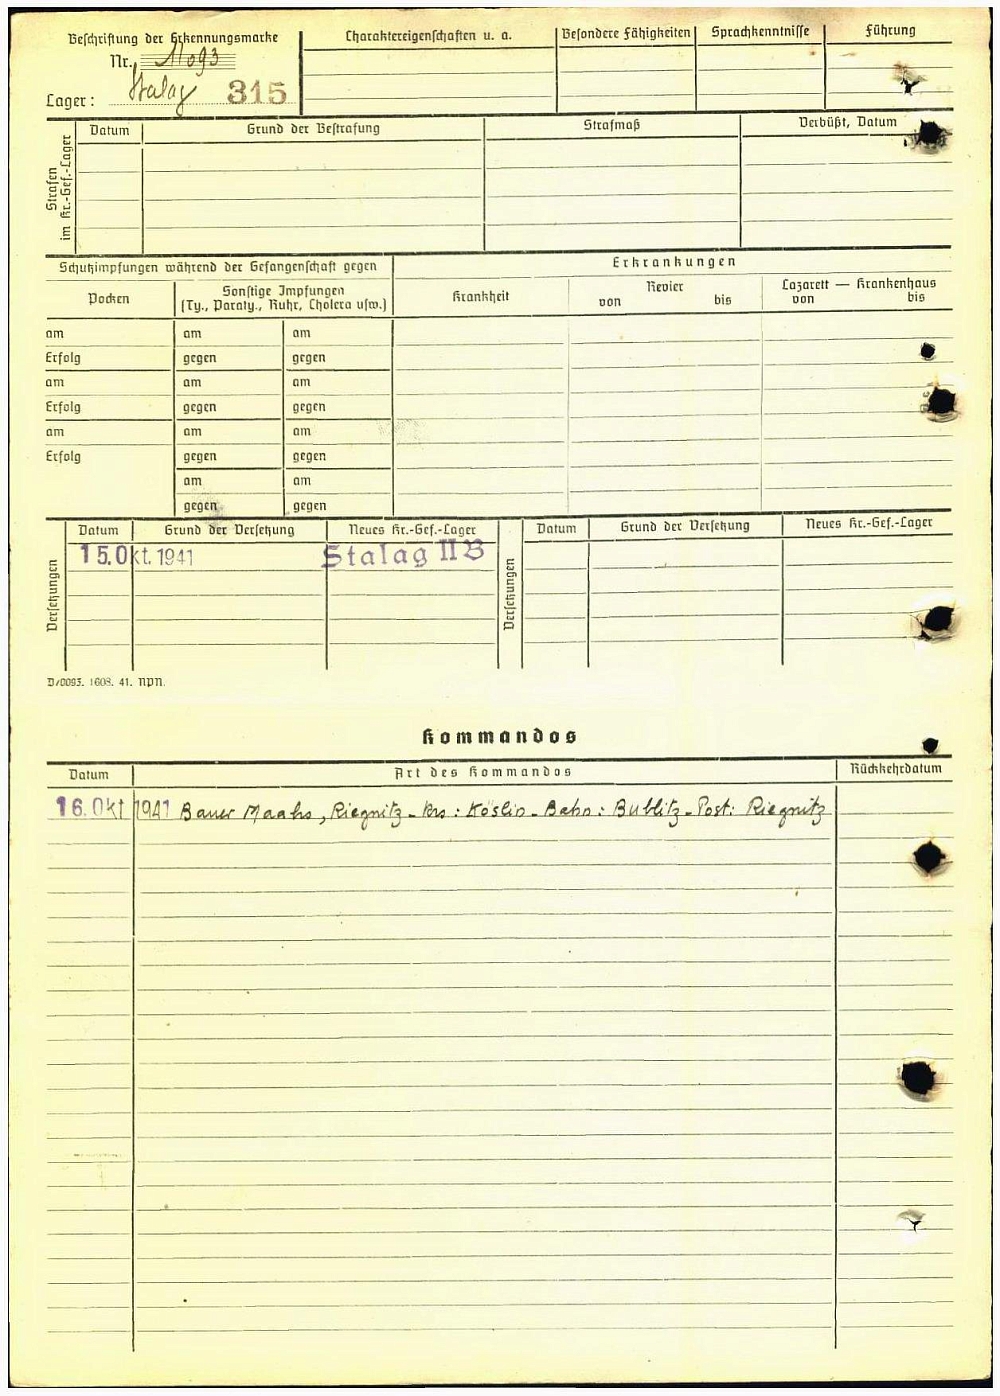 Beschriftung der Erkennungsmarke
Nr. 11093
Lager: Stalag 315
Charaktereigenschaften u. a.
Besondere Fähigkeiten
Sprachkenntnisse
Führung
Strafen im Kr.-Gef.-Lager
Datum Grund der Bestrafung Strafmaß Verbüßt, Datum
Schutzimpfungen während der Gefangenschaft gegen
Erkrankungen
Pocken
Sonstige Impfungen
(Ty., Paraty., Ruhr, Cholera usw.)
Krankheit
Revier
von bis
Lazarett — Krankenhaus
von bis
am am am
Erfolg gegen gegen
am am am
Erfolg gegen gegen
am am am
Erfolg gegen gegen
am am
gegen gegen
Versetzungen
Datum Grund der Versetzung Neues Kr.-Gef.-Lager
15. Okt. 1941 Stalag II B
Versetzungen
Datum Grund der Versetzung Neues Kr.-Gef.-Lager
D/0093. 1608. 41. NPN.
Kommandos
Datum Art des Kommandos Rückkehrdatum
16. Okt 1941 Bauer Maahs, Riegnitz - Krs: Köslin - Bahn: Bublitz - Post: Riegnitz